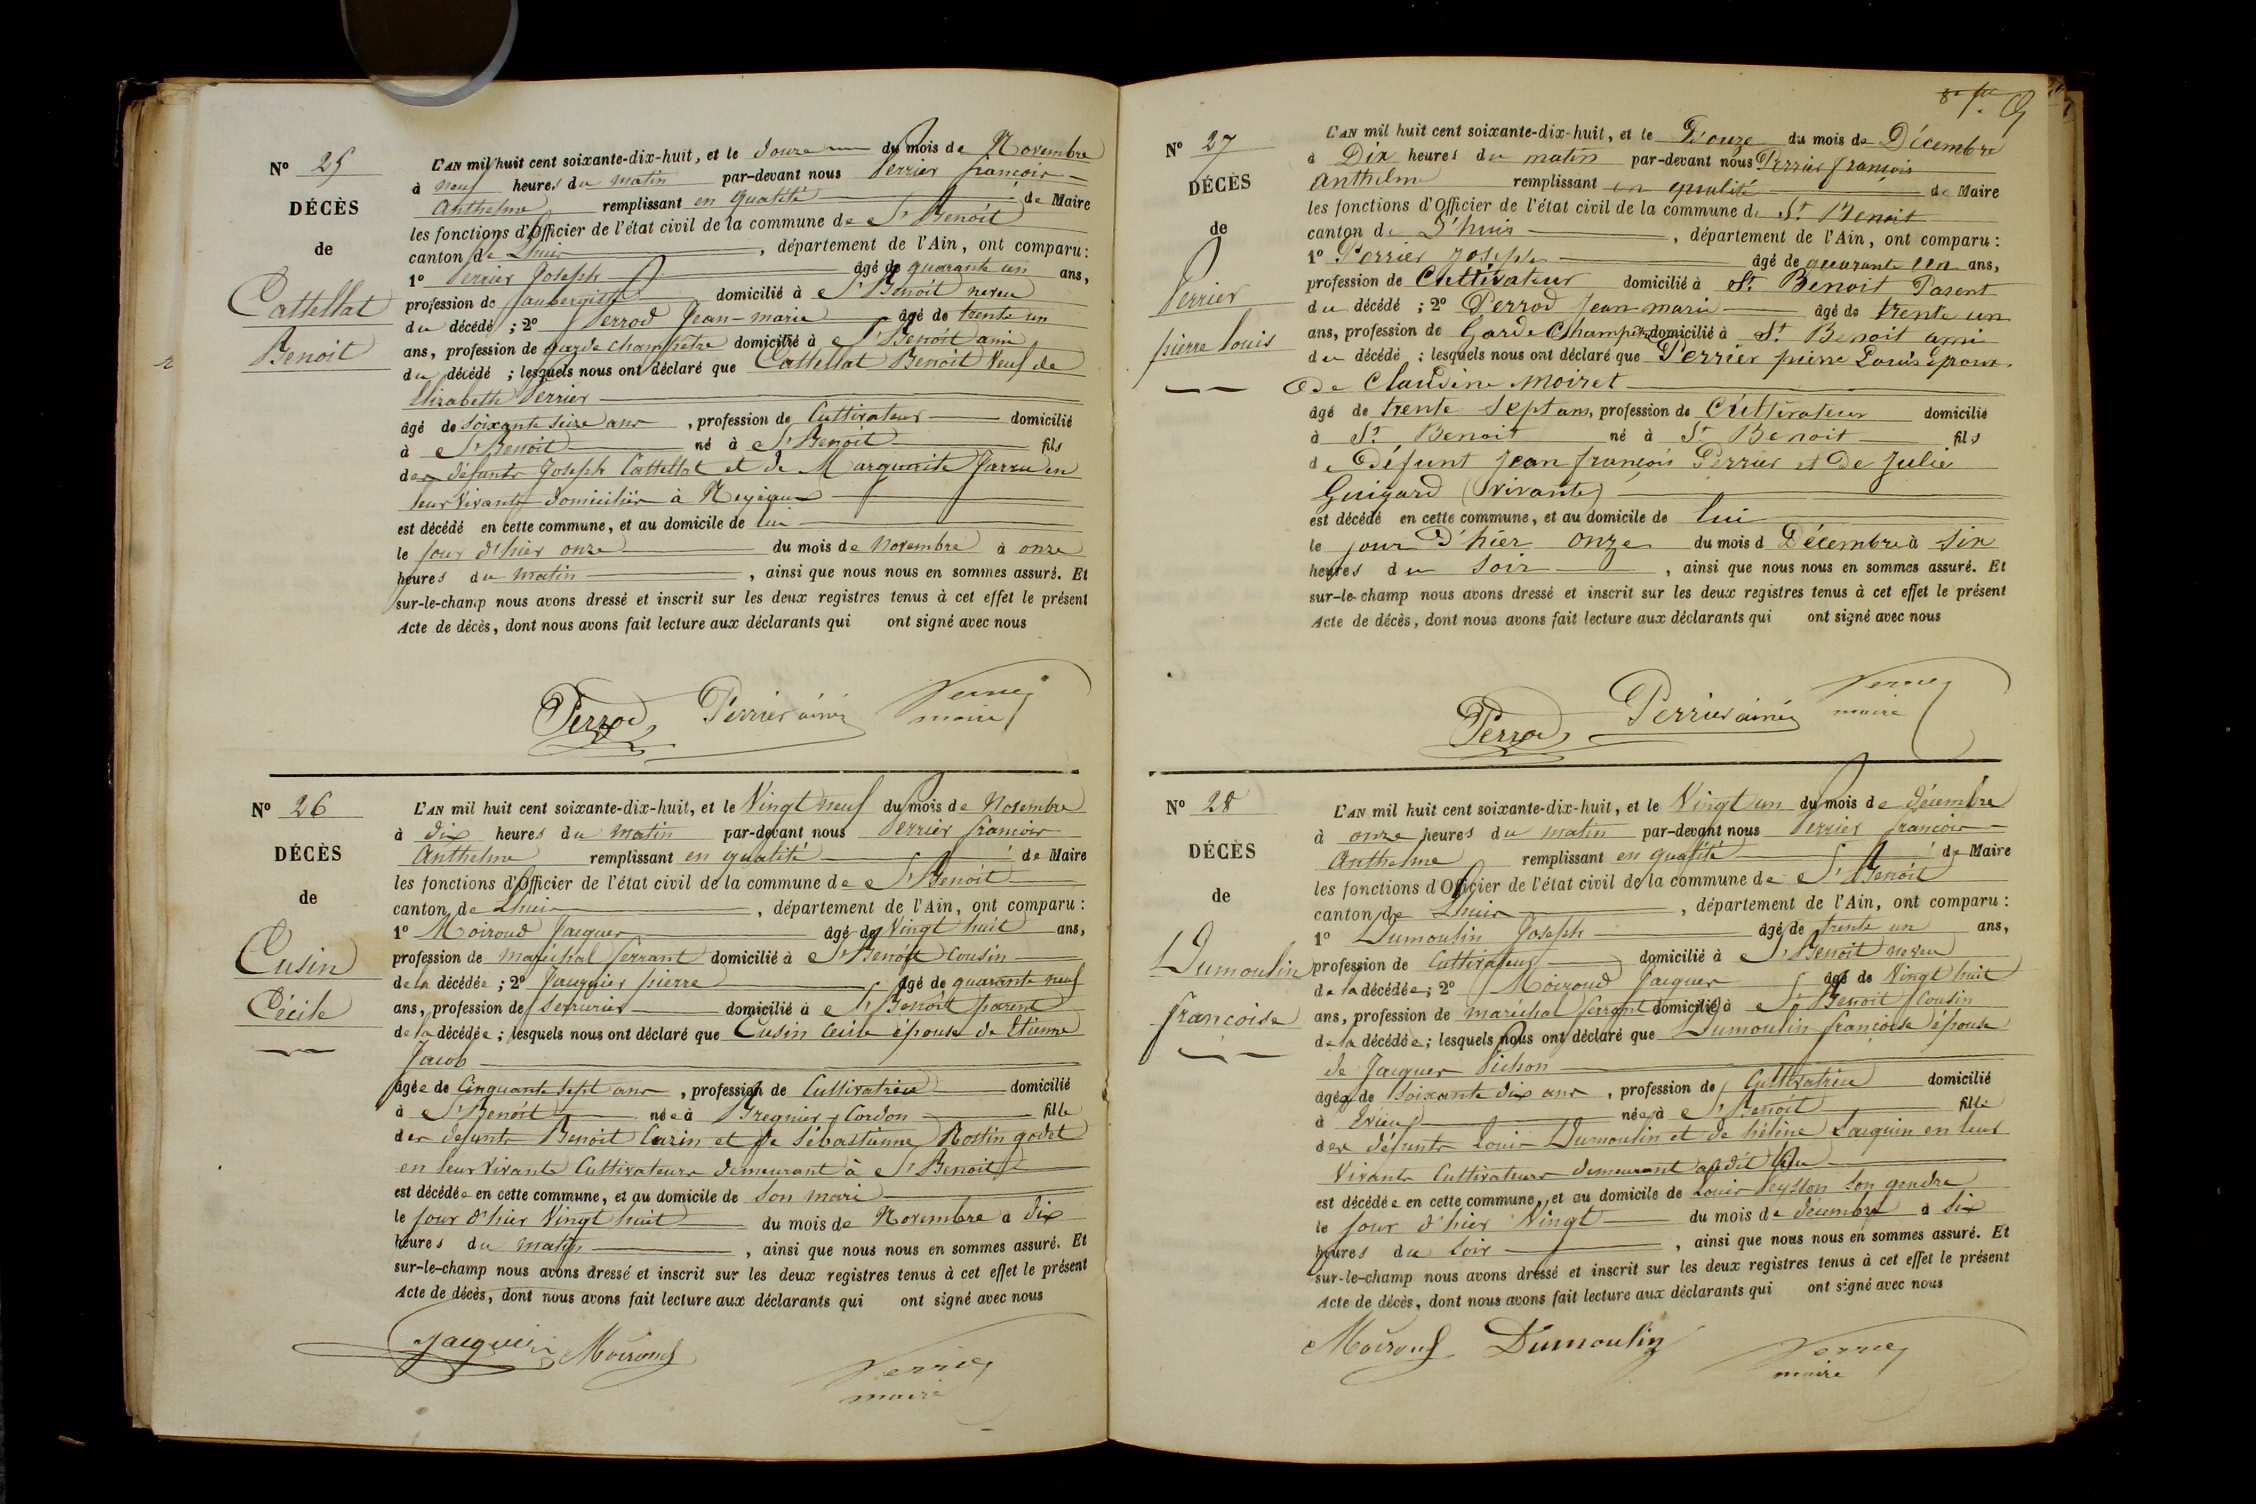 Nº 25
DÉCÈS
de
Cattellat
Benoit
L'AN mil huit cent soixante-dix-huit, et le douze du mois de Novembre
à neuf heures du matin par-devant nous Perrier françois
Anthelme remplissant en qualité de Maire
les fonctions d'Officier de l'état civil de la commune de St Benoit
canton de Lhuis, département de l'Ain, ont comparu :
1º Perrier Joseph âgé de quarante un ans,
profession de aubergiste domicilié à St Benoit neveu
du décédé ; 2º Perrod Jean-marie âgé de trente un
ans, profession de garde champêtre domicilié à St Benoit ami
du décédé ; lesquels nous ont déclaré que Cattellat Benoit Veuf de
Elizabeth Perrier
âgé de soixante seize ans, profession de Cultivateur domicilié
à St Benoit né à St Benoit fils
des défunts Joseph Cattellat et de Marguerite Jarru en
leur vivants domiciliés à
est décédé en cette commune, et au domicile de lui
le jour d'hier onze du mois de Novembre à onze
heures du matin, ainsi que nous nous en sommes assuré. Et
sur-le-champ nous avons dressé et inscrit sur les deux registres tenus à cet effet le présent
Acte de décès, dont nous avons fait lecture aux déclarants qui ont signé avec nous
Perrod Perrier ainé
maire
Nº 26
DÉCÈS
de
Cusin
Cécile
L'AN mil huit cent soixante-dix-huit, et le Vingt neuf du mois de Novembre
à dix heures du matin par-devant nous Perrier françois
Anthelme remplissant en qualité de Maire
les fonctions d'Officier de l'état civil de la commune de St Benoit
canton de Lhuis, département de l'Ain, ont comparu :
1º Moiroud Jacques âgé de Vingt huit ans,
profession de maréchal ferrant domicilié à St Benoit Cousin
de la décédée ; 2º Jacquier pierre âgé de quarante neuf
ans, profession de serrurier domicilié à St Benoit parent
de la décédée ; lesquels nous ont déclaré que Cusin Cecile épouse de Etienne
Jacob
âgée de Cinquante sept ans, profession de Cultivatrice domicilié
à St Benoit née à Bregnier Cordon fille
des defunts Benoit Cuzin et de Sébastienne Rostin godet
en leur vivants Cultivateurs demeurant à St Benoit
est décédée en cette commune, et au domicile de son mari
le jour d'hier Vingt huit du mois de Novembre à dix
heures du matin, ainsi que nous nous en sommes assuré. Et
sur-le-champ nous avons dressé et inscrit sur les deux registres tenus à cet effet le présent
Acte de décès, dont nous avons fait lecture aux déclarants qui ont signé avec nous
Jacquier Moiroud
maire
Nº 27
DÉCÈS
de
Perrier
pierre louis
L'AN mil huit cent soixante-dix-huit, et le Douze du mois de Décembre
à Dix heures du matin par-devant nous Perrier françois
Anthelme remplissant en qualité de Maire
les fonctions d'Officier de l'état civil de la commune de St Benoit
canton de L'huis, département de l'Ain, ont comparu :
1º Perrier Joseph âgé de quarante un ans,
profession de Cultivateur domicilié à St Benoit Parent
du décédé ; 2º Perrod Jean marie âgé de trente un
ans, profession de Garde Champêtre domicilié à St Benoit ami
du décédé ; lesquels nous ont déclaré que Perrier pierre Louis époux
de Claudine Moiret
âgé de trente sept ans, profession de Cultivateur domicilié
à St Benoit né à St Benoit fils
de Défunt Jean françois Perrier et De Julie
Guigard (vivante)
est décédé en cette commune, et au domicile de lui
le jour d'hier onze du mois d Décembre à six
heures du soir, ainsi que nous nous en sommes assuré. Et
sur-le-champ nous avons dressé et inscrit sur les deux registres tenus à cet effet le présent
Acte de décès, dont nous avons fait lecture aux déclarants qui ont signé avec nous
Perrod Perrier ainé
maire
Nº 28
DÉCÈS
de
Dumoulin
françoise
L'AN mil huit cent soixante-dix-huit, et le Vingt un du mois de décembre
à onze heures du matin par-devant nous Perrier françois
Anthelme remplissant en qualité de Maire
les fonctions d'Officier de l'état civil de la commune de St Benoit
canton de Lhuis, département de l'Ain, ont comparu :
1º Dumoulin Joseph âgé de trente un ans,
profession de Cultivateur domicilié à St Benoit neveu
de la décédée ; 2º Moiroud Jacques âgé de Vingt huit
ans, profession de maréchal ferrant domicilié à St Benoit Cousin
de la décédée ; lesquels nous ont déclaré que Dumoulin françoise épouse
de Jacques Pichon
âgée de soixante dix ans, profession de Cultivatrice domicilié
à Izieu née à St Benoit fille
des défunts Louis Dumoulin et de hélène Jacquin en leur
Vivants Cultivateurs demeurant au dit lieu
est décédée en cette commune, et au domicile de Louis Peysson son gendre
le jour d'hier Vingt du mois de décembre à six
heures du soir, ainsi que nous nous en sommes assuré. Et
sur-le-champ nous avons dressé et inscrit sur les deux registres tenus à cet effet le présent
Acte de décès, dont nous avons fait lecture aux déclarants qui ont signé avec nous
Moiroud Dumoulin
maire